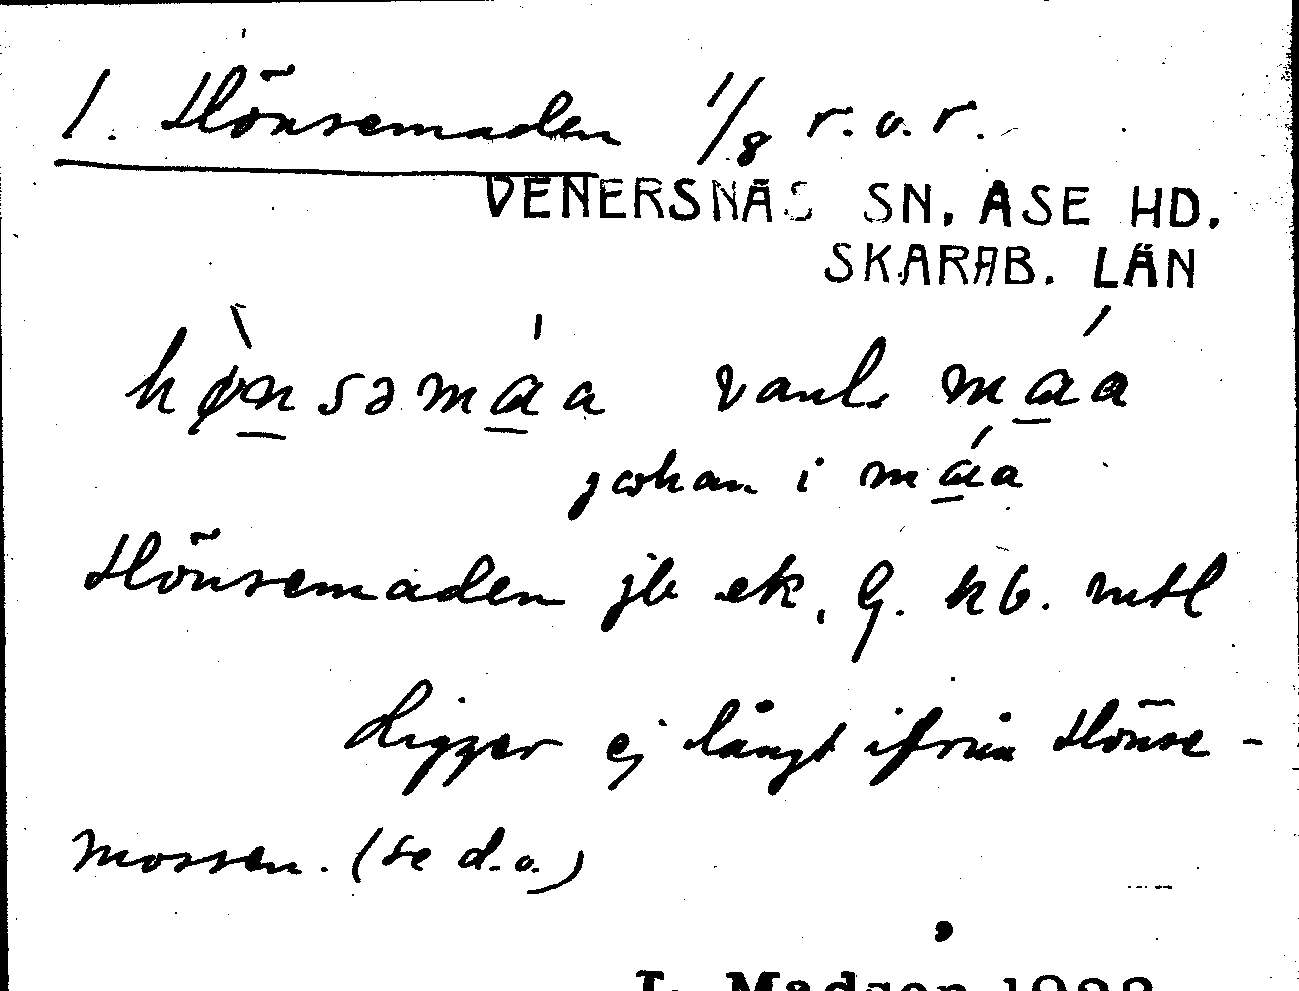 1. Hönsemaden 1/8 r.o.r.
VENERSNÄS SN. ASE HD.
SKARAB. LÄN
hø̀nsəmáa vanl. máa
johan i máa
Hönsemaden jb ek, G. kb. mtl
Ligger ej långt ifrån Hönse-
mossen. (se d.o.)